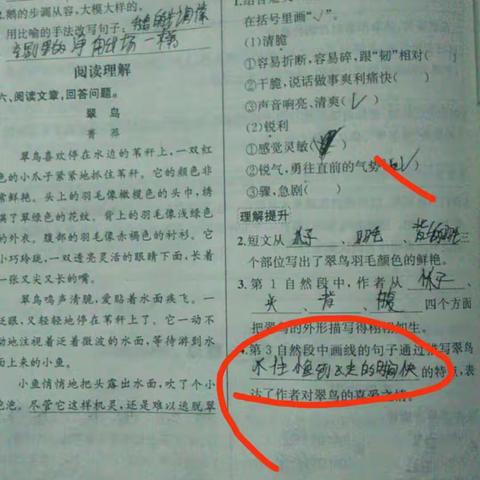 2.鹅的步调从容,大模大样的。
用比喻的手法改写句子:
阅读理解
六、阅读文章,回答问题。
翠鸟
菁莽
翠鸟喜欢停在水边的苇秆上,一双红
色的小爪子紧紧地抓住苇秆。它的颜色非
常鲜艳。头上的羽毛像橄榄色的头巾,绣
满了翠绿色的花纹。背上的羽毛像浅绿色
的外衣。腹部的羽毛像赤褐色的衬衫。它
小巧玲珑,一双透亮灵活的眼睛下面,长着
一张又尖又长的嘴。
翠鸟鸣声清脆,爱贴着水面疾飞。一
眨眼,又轻轻地停在苇秆上了。它一动不
动地注视着泛着微波的水面,等待游到水
面上来的小鱼。
小鱼悄悄地把头露出水面,吹了个小
泡泡。尽管它这样机灵,还是难以逃脱翠
在括号里画“✓”。
(1)清脆
①容易折断,容易碎,跟“韧”相对( )
②干脆,说话做事爽利痛快( )
③声音响亮、清爽( ✓ )
(2)锐利
①感觉灵敏( )
②锐气,勇往直前的气势( ✓ )
③骤,急剧( )
理解提升
2.短文从 爪子 、 羽毛 、 三
个部位写出了翠鸟羽毛颜色的鲜艳。
3.第1自然段中,作者从 、
头 、 背 、 腹 四个方面
把翠鸟的外形描写得栩栩如生。
4.第3自然段中画线的句子通过描写翠鸟
的特点,表
达了作者对翠鸟的喜爱之情。